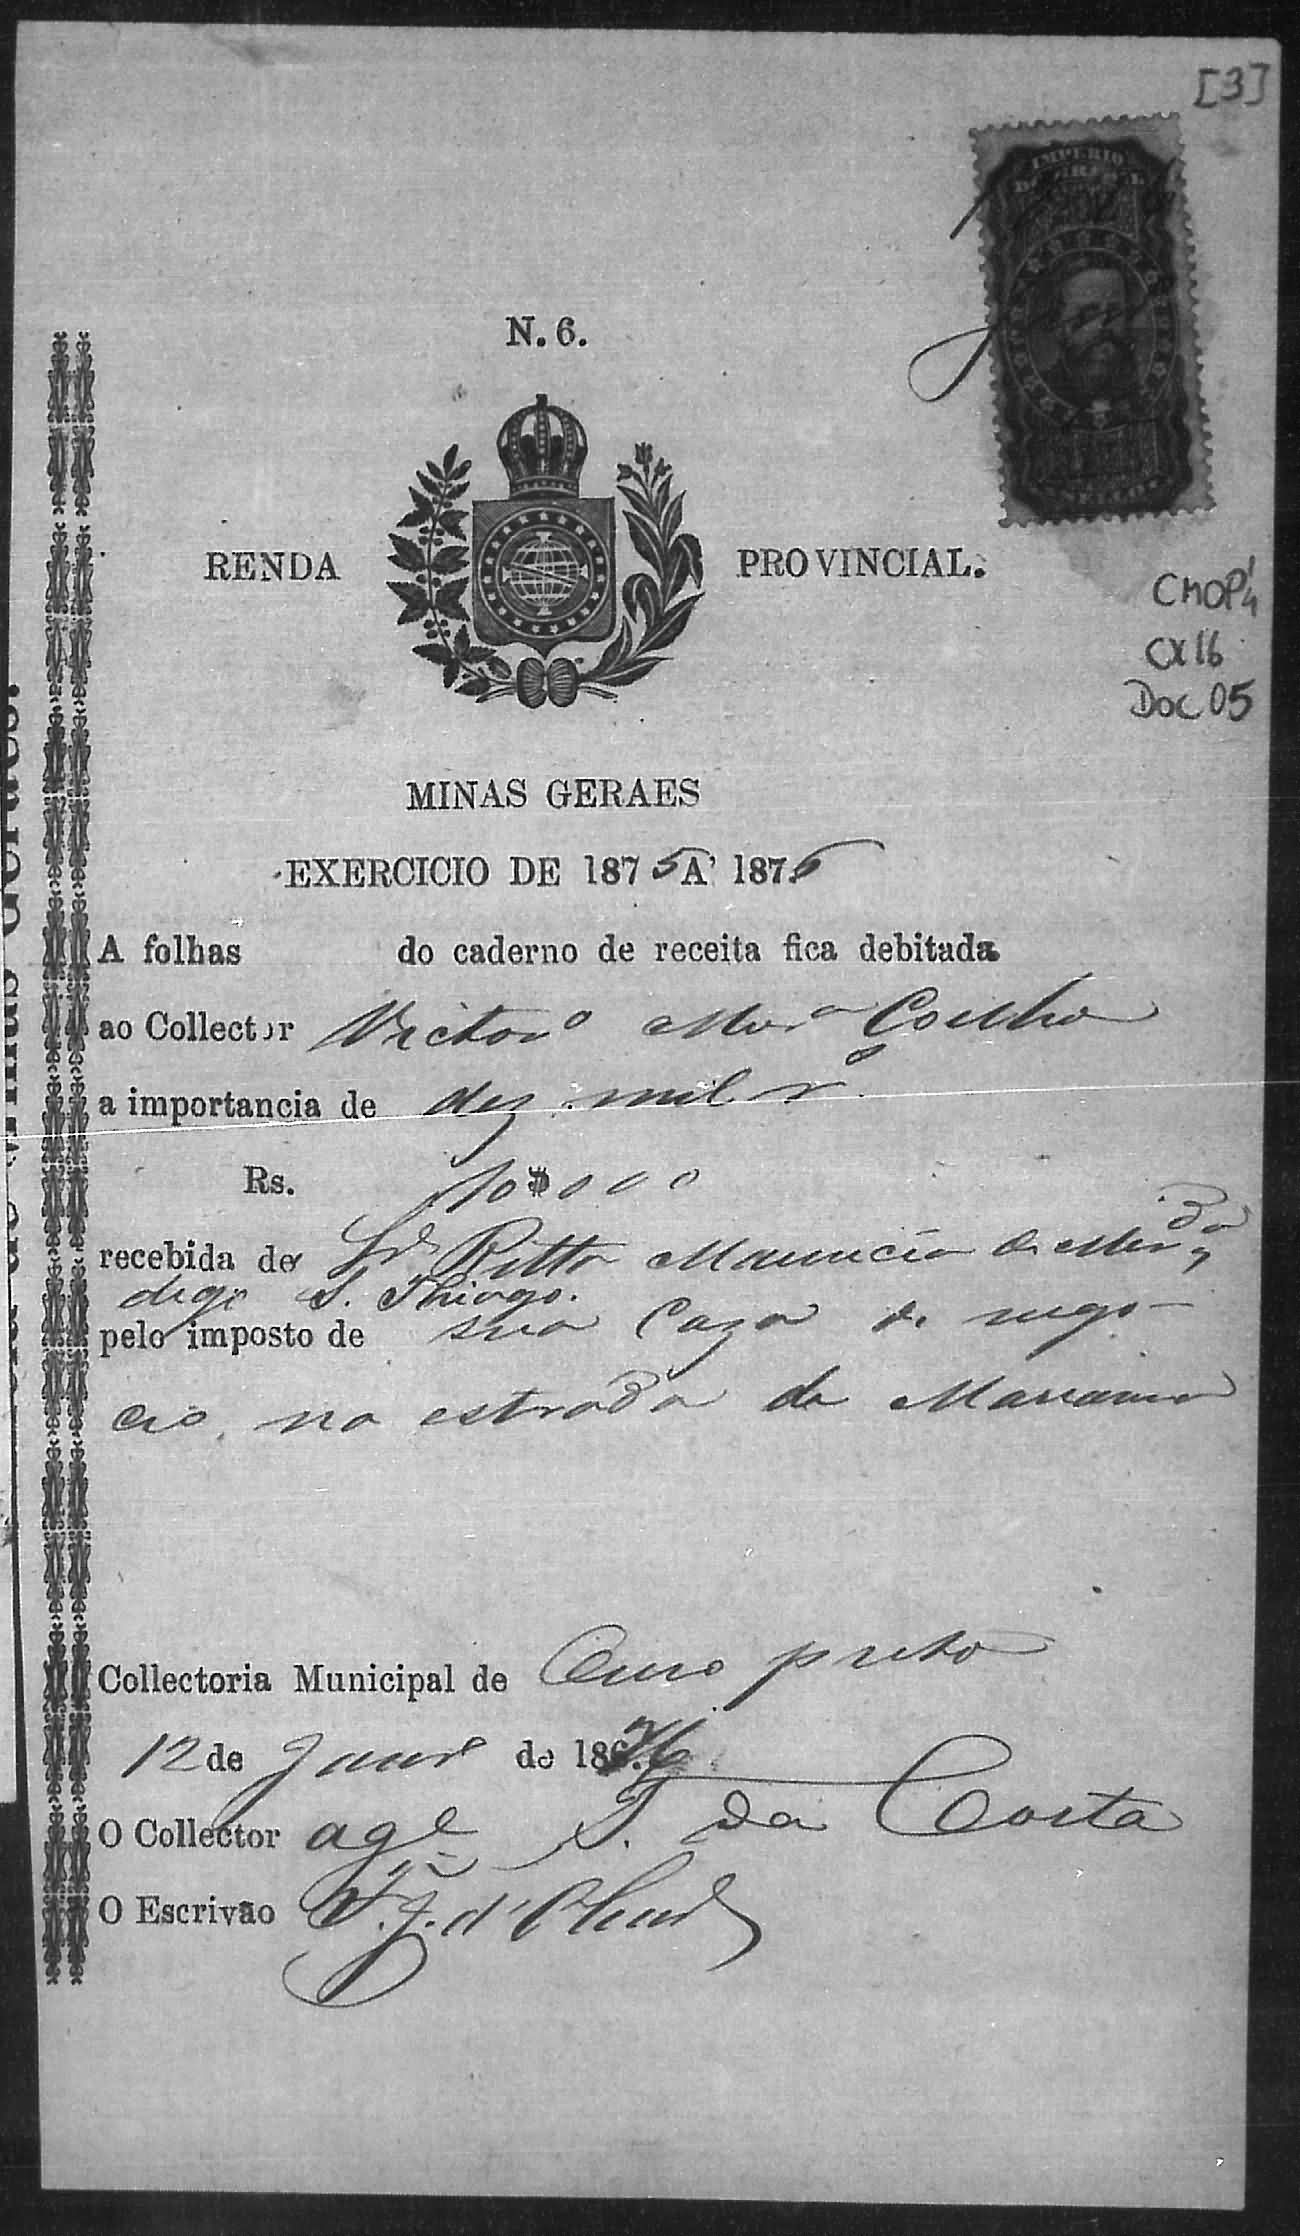 [3]
IMPERIO
DO BRASIL
SELLO
N. 6.
RENDA PROVINCIAL.
CMOP
CX 16
Doc 05
MINAS GERAES
EXERCICIO DE 1875 A' 1876
A folhas do caderno de receita fica debitada
ao Collector Victor° Mor.ª Coelho
a importancia de dez mil rs
Rs. 10$000
recebida de Sr Ritta Mauricia de
digo S. Thiago.
pelo imposto de sua Caza de nego-
cio, na estrada de Marianna
Collectoria Municipal de Ouro preto
12 de Janr° de 1876
O Collector age J. da Costa
O Escrivão